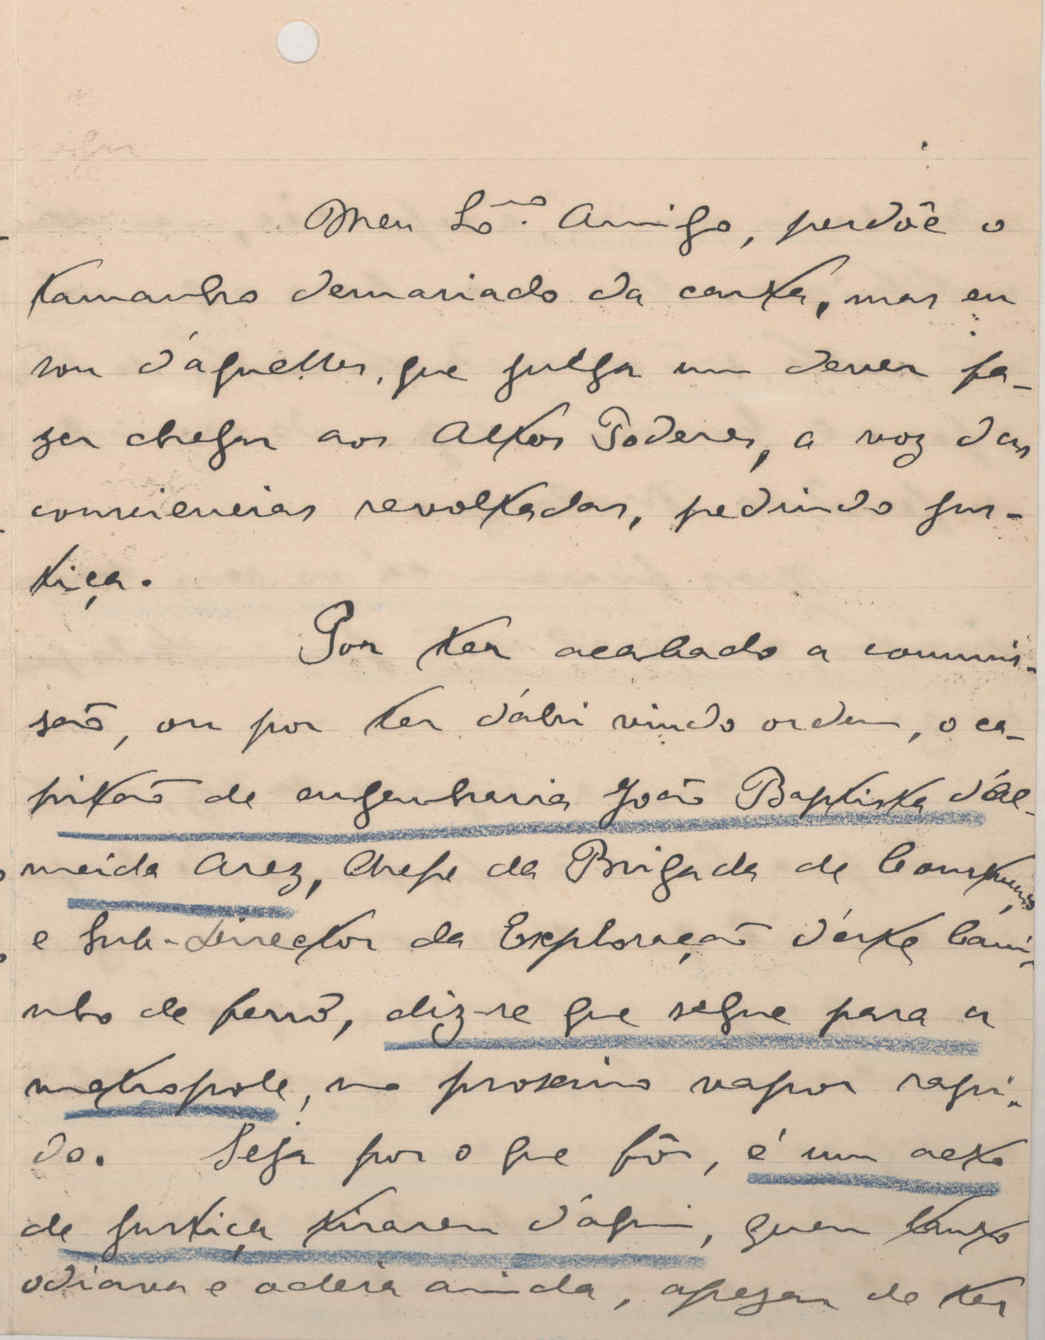 Meu Amigo, perdôe o
tamanho demasiado da carta, mas eu
sou d'aquelles, que julga um dever fa-
zer chegar aos Altos Poderes, a voz das
consciencias revoltadas, pedindo jus-
tiça.
Por ter acabado a commis-
são, ou por ter d'ahi vindo ordem, o ca-
pitão de engenharia João Baptista d'Al-
meida Arez, Chefe da Brigada de
e Sub-Director da Exploração d'éste Cami-
nho de ferrõ, diz-se que segue para a
metropole, no proximo vapor rapi-
do. Seja por o que fôr, é um acto
de justiça tirarem d'aqui, quem tanto
odiava e odeia ainda, apezar de ter